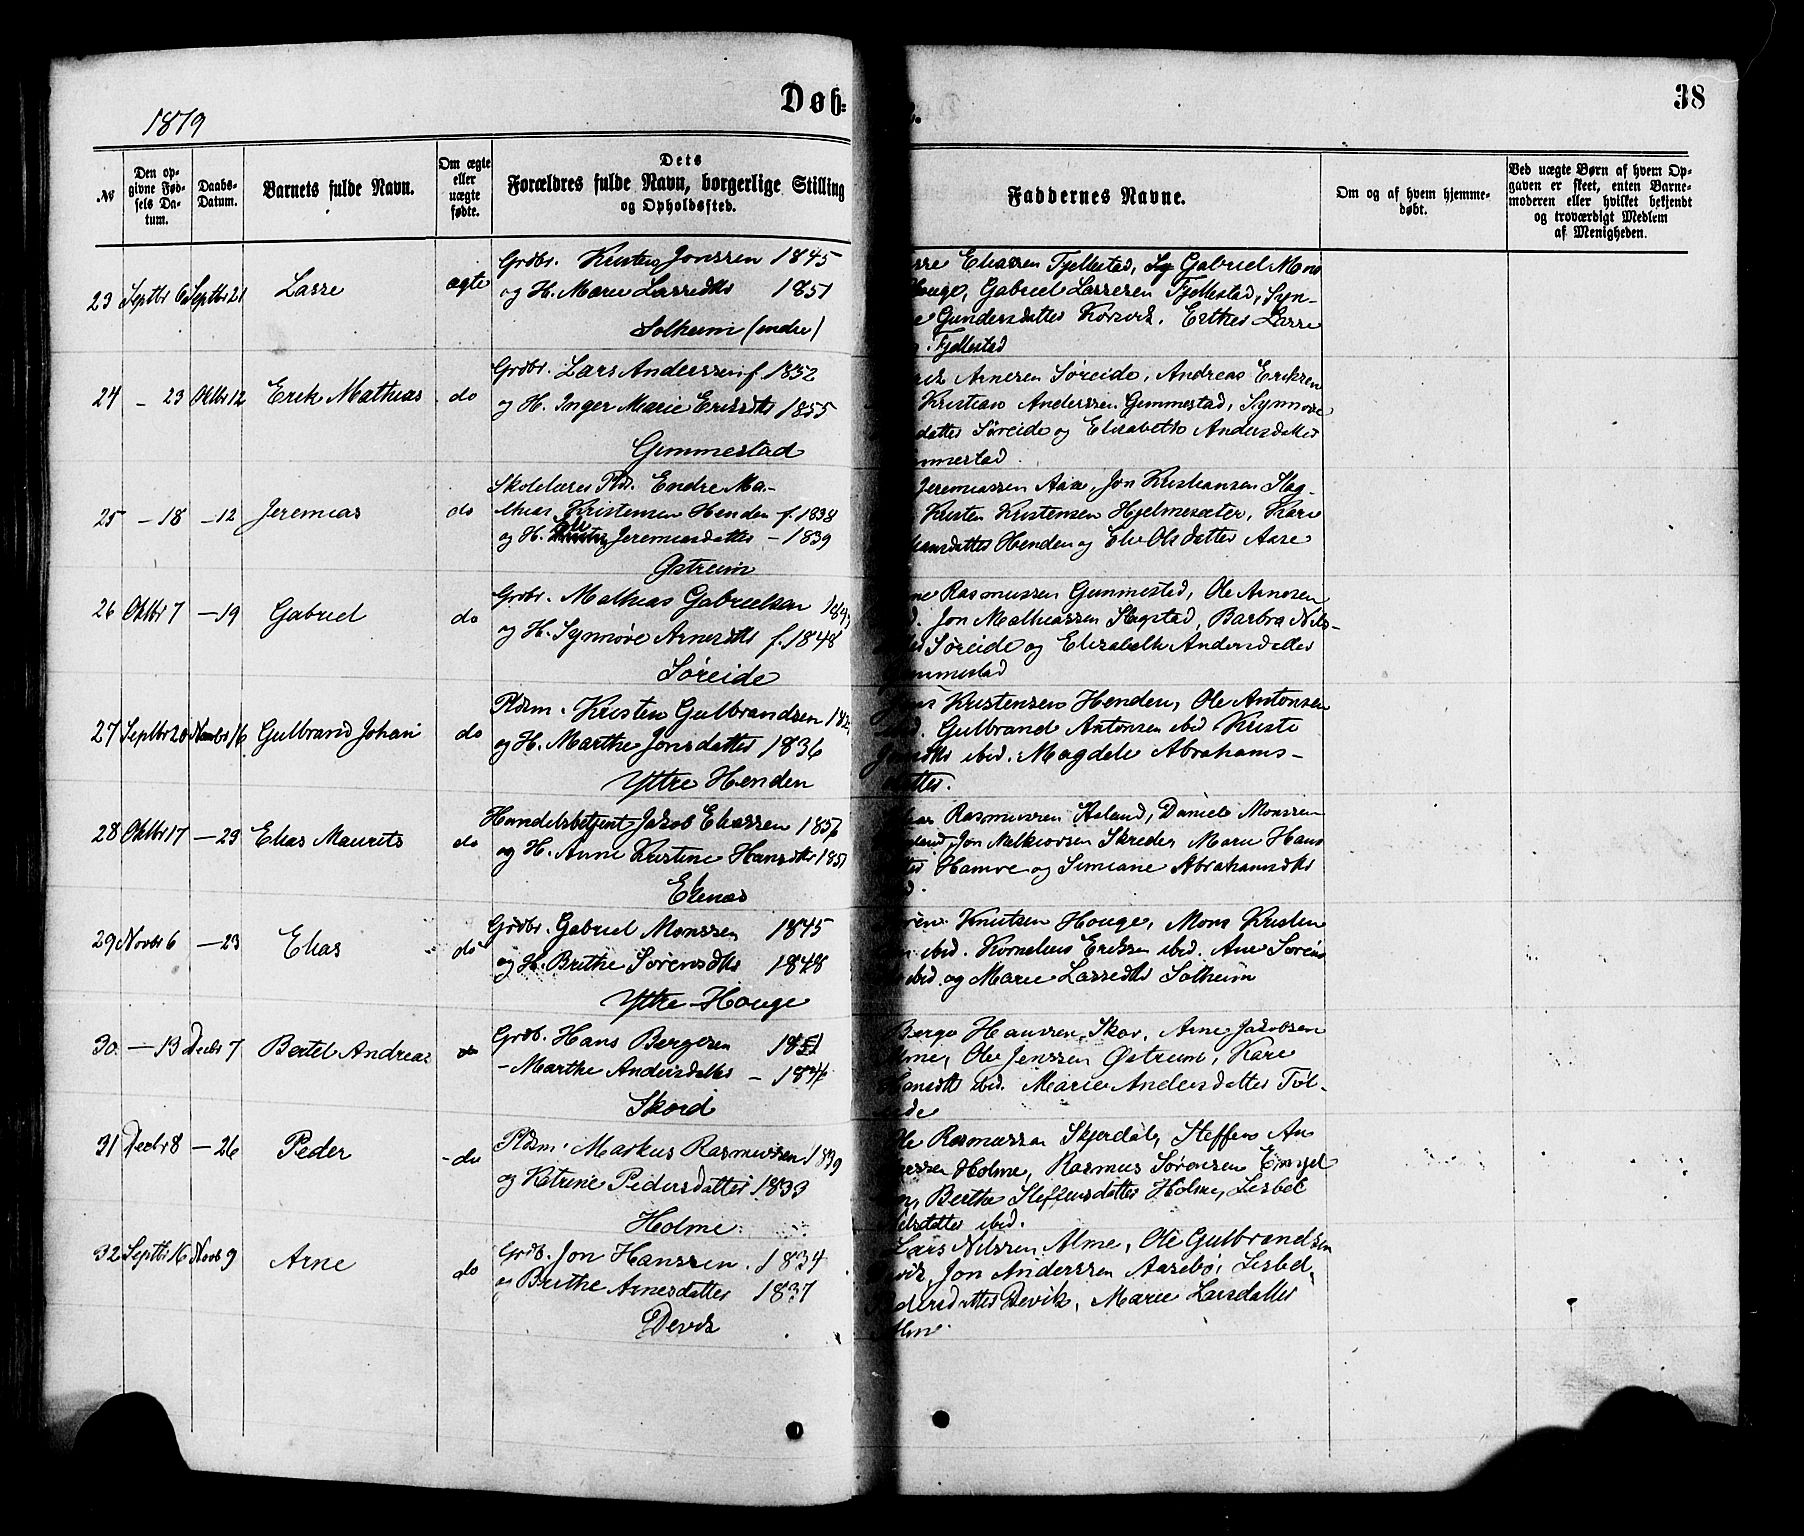 1879
Døb-
38
№
Den opgivne Fødsels Datum.
Daabs-Datum.
Barnets fulde Navn.
Om ægte eller uægte fødte.
Dets Forældres fulde Navn, borgerlige Stilling og Opholdssted.
Faddernes Navne.
Om og af hvem hjemmedøbt.
Ved uægte Børn af hvem Opgaven er skeet, enten Barnemoderen eller hvilket bekjendt og troværdigt Medlem af Menigheden.
23 Septbr 6 Septbr 21 Lasse ægte
Grdbr. Kristen Jonssen 1845
og H. Marie Lassedtr 1851
Solheim (indre)
Eliassen Fjellestad, Gabriel Mons
Houge, Gabriel Lassesen Fjellestad, Syn-
Gundersdatter Kørsvik, Esther Lasse
Fjellestad
24 – 23 Oktbr 12 Erik Mathias do
Grdbr. Lars Anderssen f. 1832
og H. Inger Marie Eriksdtr 1855
Gimmestad
Arnesen Søreide, Andreas Eriksen
Kristian Anderssen Gimmestad, Synnøve
datter Søreide og Elisabeth Andersdatter
25 – 18 – 12 Jeremias do
Skolelærer Pld. Endre Ma-
thias Kristensen Henden f. 1838
og H. Jeremiasdatter – 1839
Østreim
Jeremiassen Aase, Jon Kristiansen Hag-
Kristen Kristensen Hjelmesæter, Kari
Henden og Eli Olsdatter Aase
26 Oktbr 7 – 19 Gabriel do
Grdbr. Mathias Gabrielsen
og H. Synnøve Arnesdtr f. 1848
Søreide
Rasmussen Gimmestad, Ole Arnesen
Jon Mathiassen Hagstad, Barbra Nils-
Søreide og Elisabeth Andersdatter
27 Septbr 20 Novbr 16 Gulbrand Johan do
Pldsm. Kristen Gulbrandsen
og H. Marthe Jonsdatter 1836
Yttre Henden
Kristensen Henden, Ole Antonsen
Gulbrand Antonsen ibid Kristi
ibid. Magdele Abrahams-
datter.
28 Oktbr 17 – 29 Elias Maurits do
Handelsbetjent Jakob Eliassen 1856
og H. Anne Kristine Hansdtr 1851
Ekenæs
Rasmussen Aaland, Daniel Monssen
Jon Melkiorsen Skreder Marie Hans
Hamre og Simiane Abrahamsdtr
29 Novbr 6 – 23 Elias do
Grdbr. Gabriel Monssen 1845
og H. Brithe Sørensdtr 1848
Yttre Houge
Knutsen Houge, Mons Kristen
ibid. Kornelius Eriksen ibid. Ane Sørens
ibid. og Marie Lassedtr Solheim
30 – 13 Decbr 7 Bertel Andreas do
Grdb. Hans Bergesen
– Marthe Andersdatter – 1846
Skord
Berge Hanssen Skor, Arne Jakobsen
Ole Jenssen Østreim, Kari
Hansdtr ibid. Marie Andersdatter
31 Decbr 8 – 26 Peder – do
Pldsm. Markus Rasmussen 1839
og Katrine Pedersdatter 1833
Holme.
Ole Rasmussen Skjerdal, Steffens An
Holme, Rasmus Sørensen
Berthe Steffensdatter Holme, Lisbet
ibid.
32 Septbr 16 Novb 9 Arne do
Grdb. Jon Hanssen. 1834
og Brithe Arnesdatter 1837
Devik
Lars Nilssen Alme, Ole Gulbrandsen
Jon Anderssen Aasebø, Lisbet
Devik, Marie Larsdatter
Alme.